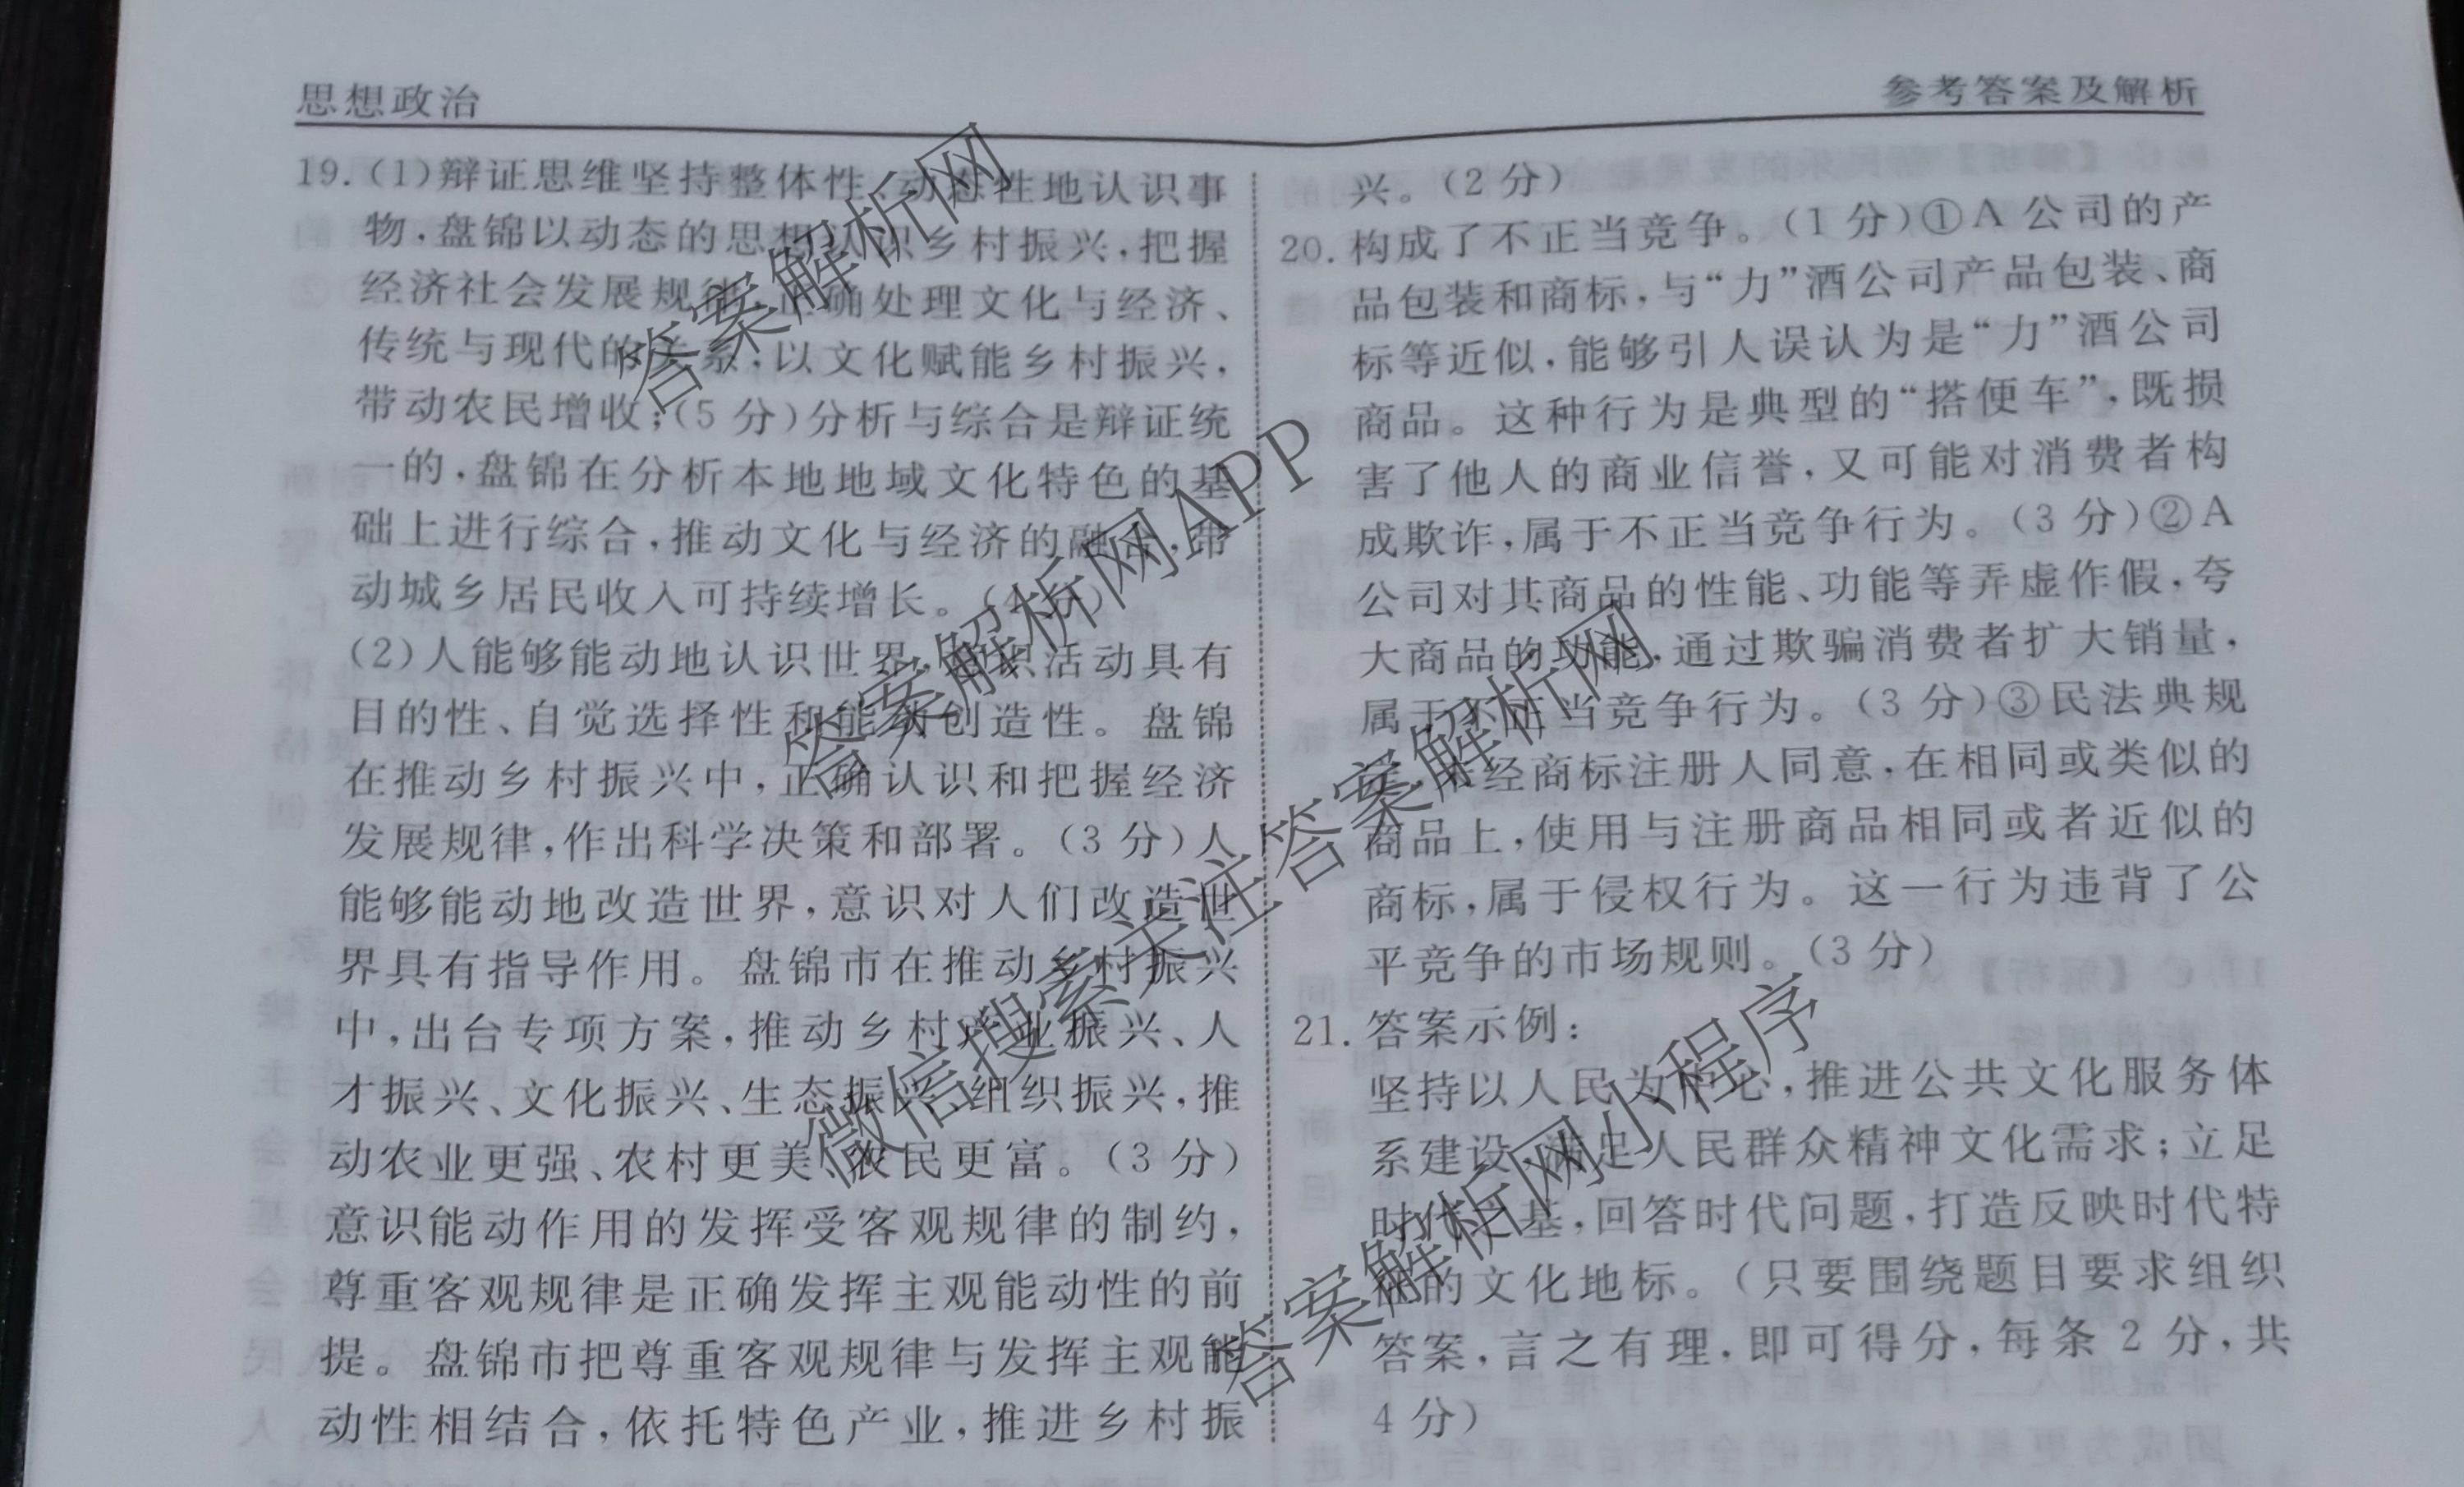 思想政治
参考答案及解析
19.(1)辩证思维坚持整体性、动态性地认识事
物,盘锦以动态的思想认识乡村振兴,把握
经济社会发展规律,正确处理文化与经济、
传统与现代的关系;以文化赋能乡村振兴,
带动农民增收;(5 分)分析与综合是辩证统
一的,盘锦在分析本地地域文化特色的基
础上进行综合,推动文化与经济的融合,带
动城乡居民收入可持续增长。(4 分)
(2)人能够能动地认识世界,意识活动具有
目的性、自觉选择性和能动创造性。盘锦
在推动乡村振兴中,正确认识和把握经济
发展规律,作出科学决策和部署。(3 分)人
能够能动地改造世界,意识对人们改造世
界具有指导作用。盘锦市在推动乡村振兴
中,出台专项方案,推动乡村产业振兴、人
才振兴、文化振兴、生态振兴、组织振兴,推
动农业更强、农村更美、农民更富。(3 分)
意识能动作用的发挥受客观规律的制约,
尊重客观规律是正确发挥主观能动性的前
提。盘锦市把尊重客观规律与发挥主观能
动性相结合,依托特色产业,推进乡村振
兴。(2 分)
20.构成了不正当竞争。(1 分)①A 公司的产
品包装和商标,与“力”酒公司产品包装、商
标等近似,能够引人误认为是“力”酒公司
商品。这种行为是典型的“搭便车”,既损
害了他人的商业信誉,又可能对消费者构
成欺诈,属于不正当竞争行为。(3 分)②A
公司对其商品的性能、功能等弄虚作假,夸
大商品的功能,通过欺骗消费者扩大销量,
属于不正当竞争行为。(3 分)③民法典规
定,未经商标注册人同意,在相同或类似的
商品上,使用与注册商品相同或者近似的
商标,属于侵权行为。这一行为违背了公
平竞争的市场规则。(3 分)
21.答案示例:
坚持以人民为中心,推进公共文化服务体
系建设,满足人民群众精神文化需求;立足
时代之基,回答时代问题,打造反映时代特
征的文化地标。(只要围绕题目要求组织
答案,言之有理,即可得分,每条 2 分,共
4 分)
答案解析网
答案解析网APP
微信搜索关注答案解析网
答案解析网小程序